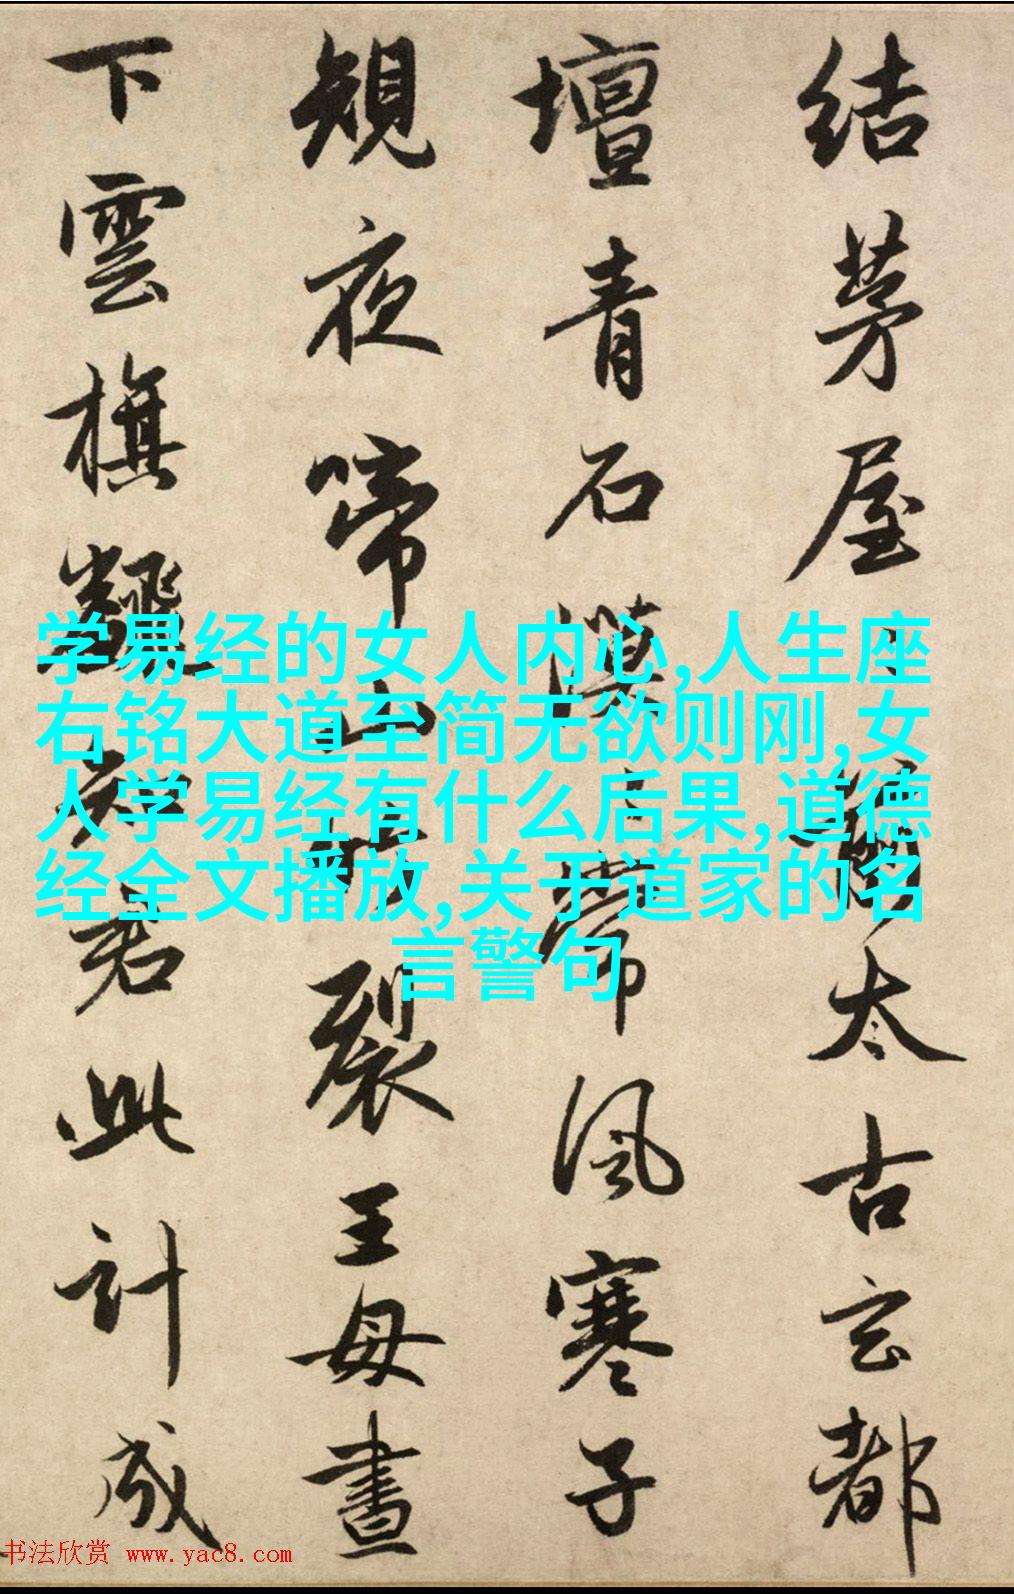 结茅屋太古玄都
壇青石漠常風寒子
規夜啼山竹裂王母晝
下雲旗翻知君此計成
学易经的女人内心,人生座
右铭大道至简无欲则刚,女
人学易经有什么后果,道德
经全文播放,关于道家的名
言警句
书法欣赏 www.yac8.com